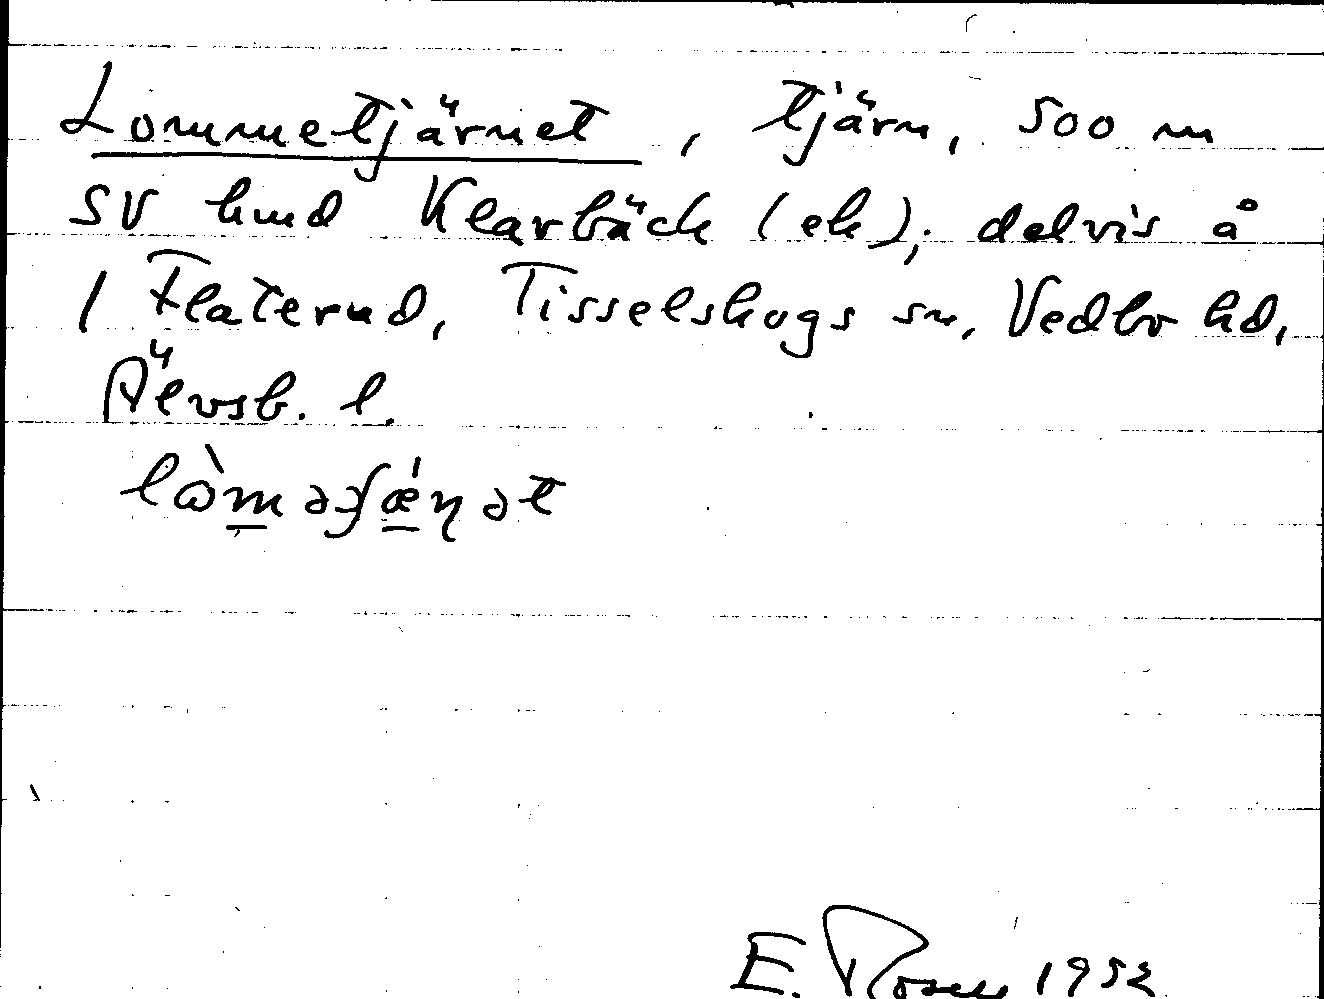 Lommetjärnet, tjärn, 500 m
SV hmd Klarbäck (ek); delvis å
1 Flaterud, Tisselskogs sn, Vedbo hd,
Älvsb. l.
E. Rosén 1952